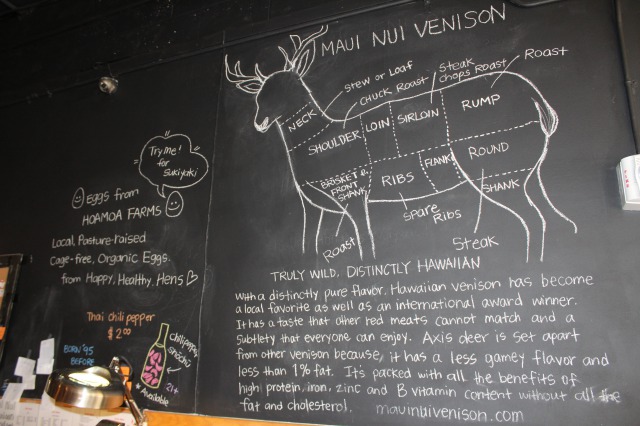 MAUI NUI VENISON
Stew or Loaf
Chuck Roast
Steak
Chops Roast
Roast
NECK
SHOULDER
LOIN
SIRLOIN
RUMP
BRISKET &
FRONT
SHANK
RIBS
FLANK
ROUND
SHANK
Roast
Spare
Ribs
Steak
TRULY WILD, DISTINCTLY HAWAIIAN
With a distinctly pure flavor, Hawaiian venison has become
a local favorite as well as an international award winner.
It has a taste that other red meats cannot match and a
subtlety that everyone can enjoy. Axis deer is set apart
from other venison because, it has a less gamey flavor and
less than 1% fat. It's packed with all the benefits of
high protein, iron, zinc and B vitamin content without all the
fat and cholesterol. mauinuivenison.com
Try me!
for
Sukiyaki
Eggs from
HOAMOA FARMS
Local, Pasture-raised
Cage-free, Organic Eggs.
from Happy, Healthy, Hens
Thai chili pepper
$2.00
BORN '95
BEFORE
Chili pepper
Shochu
21+
Available